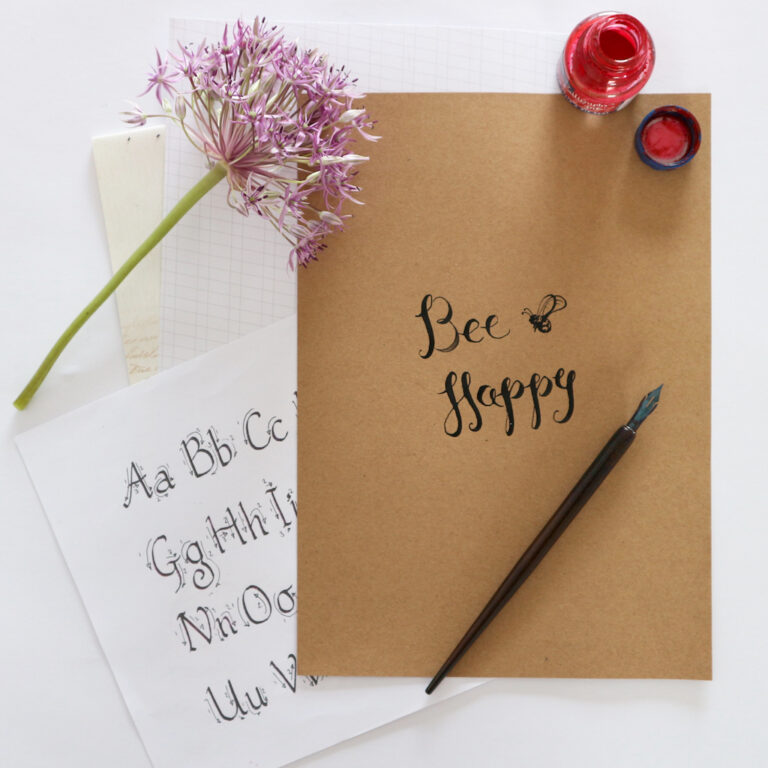 Bee
Happy
Aa Bb Cc
Gg Hh Ii
Nn Oo
Uu V